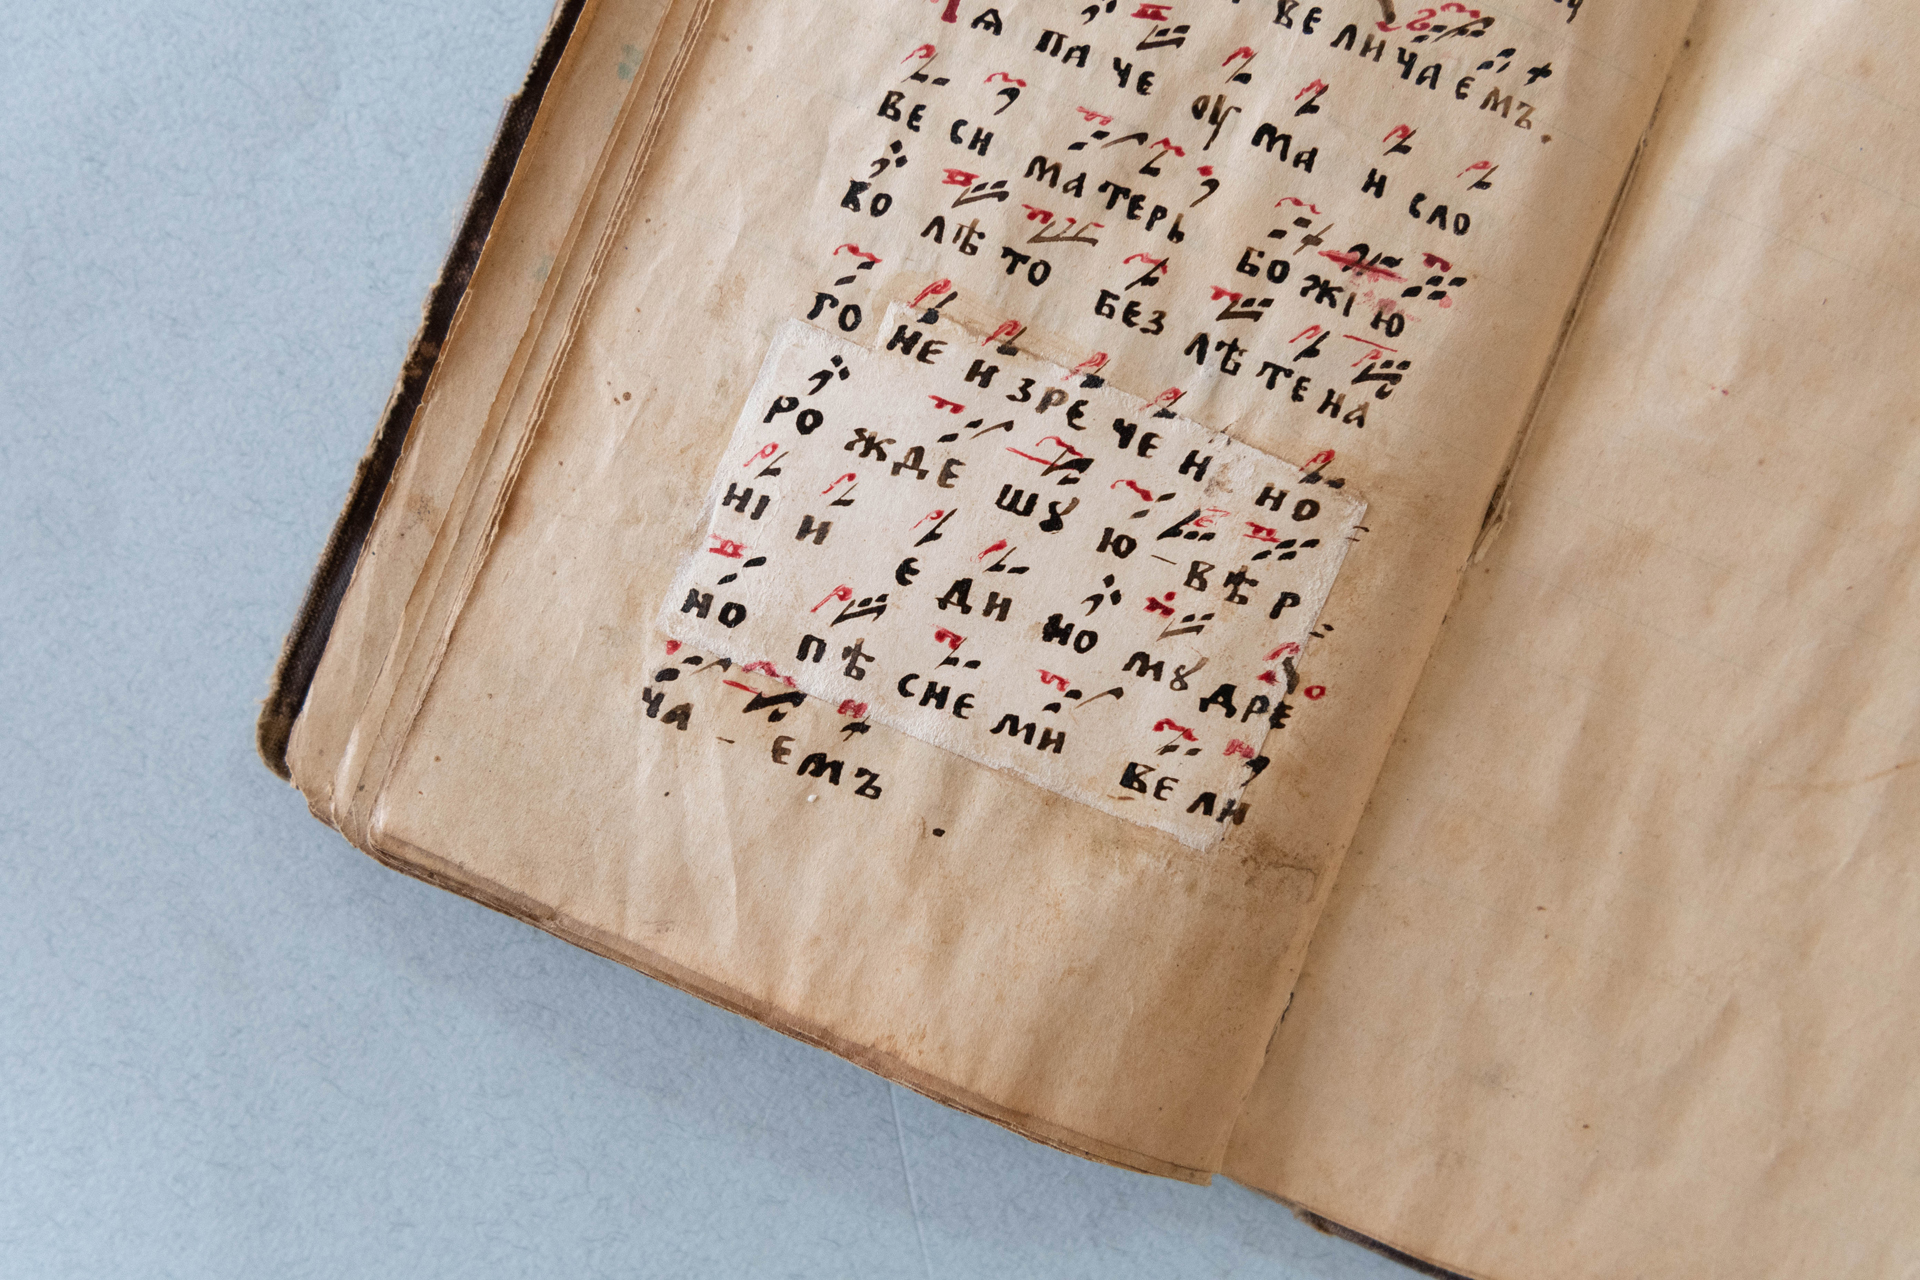 ВЕ ЛИ ЧА Е МЪ.
Ѧ ПА ЧЕ ОУ МА И СЛО
ВЕ СИ МА ТЕРЬ БО ЖІ Ю
ВО ЛѢ ТО БЕЗ ЛѢ ТЕ НА
ГО НЕ И ЗРЕ ЧЕ Н НО
РО ЖДЕ ШꙊ Ю – ВѢ Р
НІ И Е ДИ НО МꙊ ДРЕ
НО ПѢ СНЕ МИ ВЕ ЛИ
ЧА – Е МЪ .